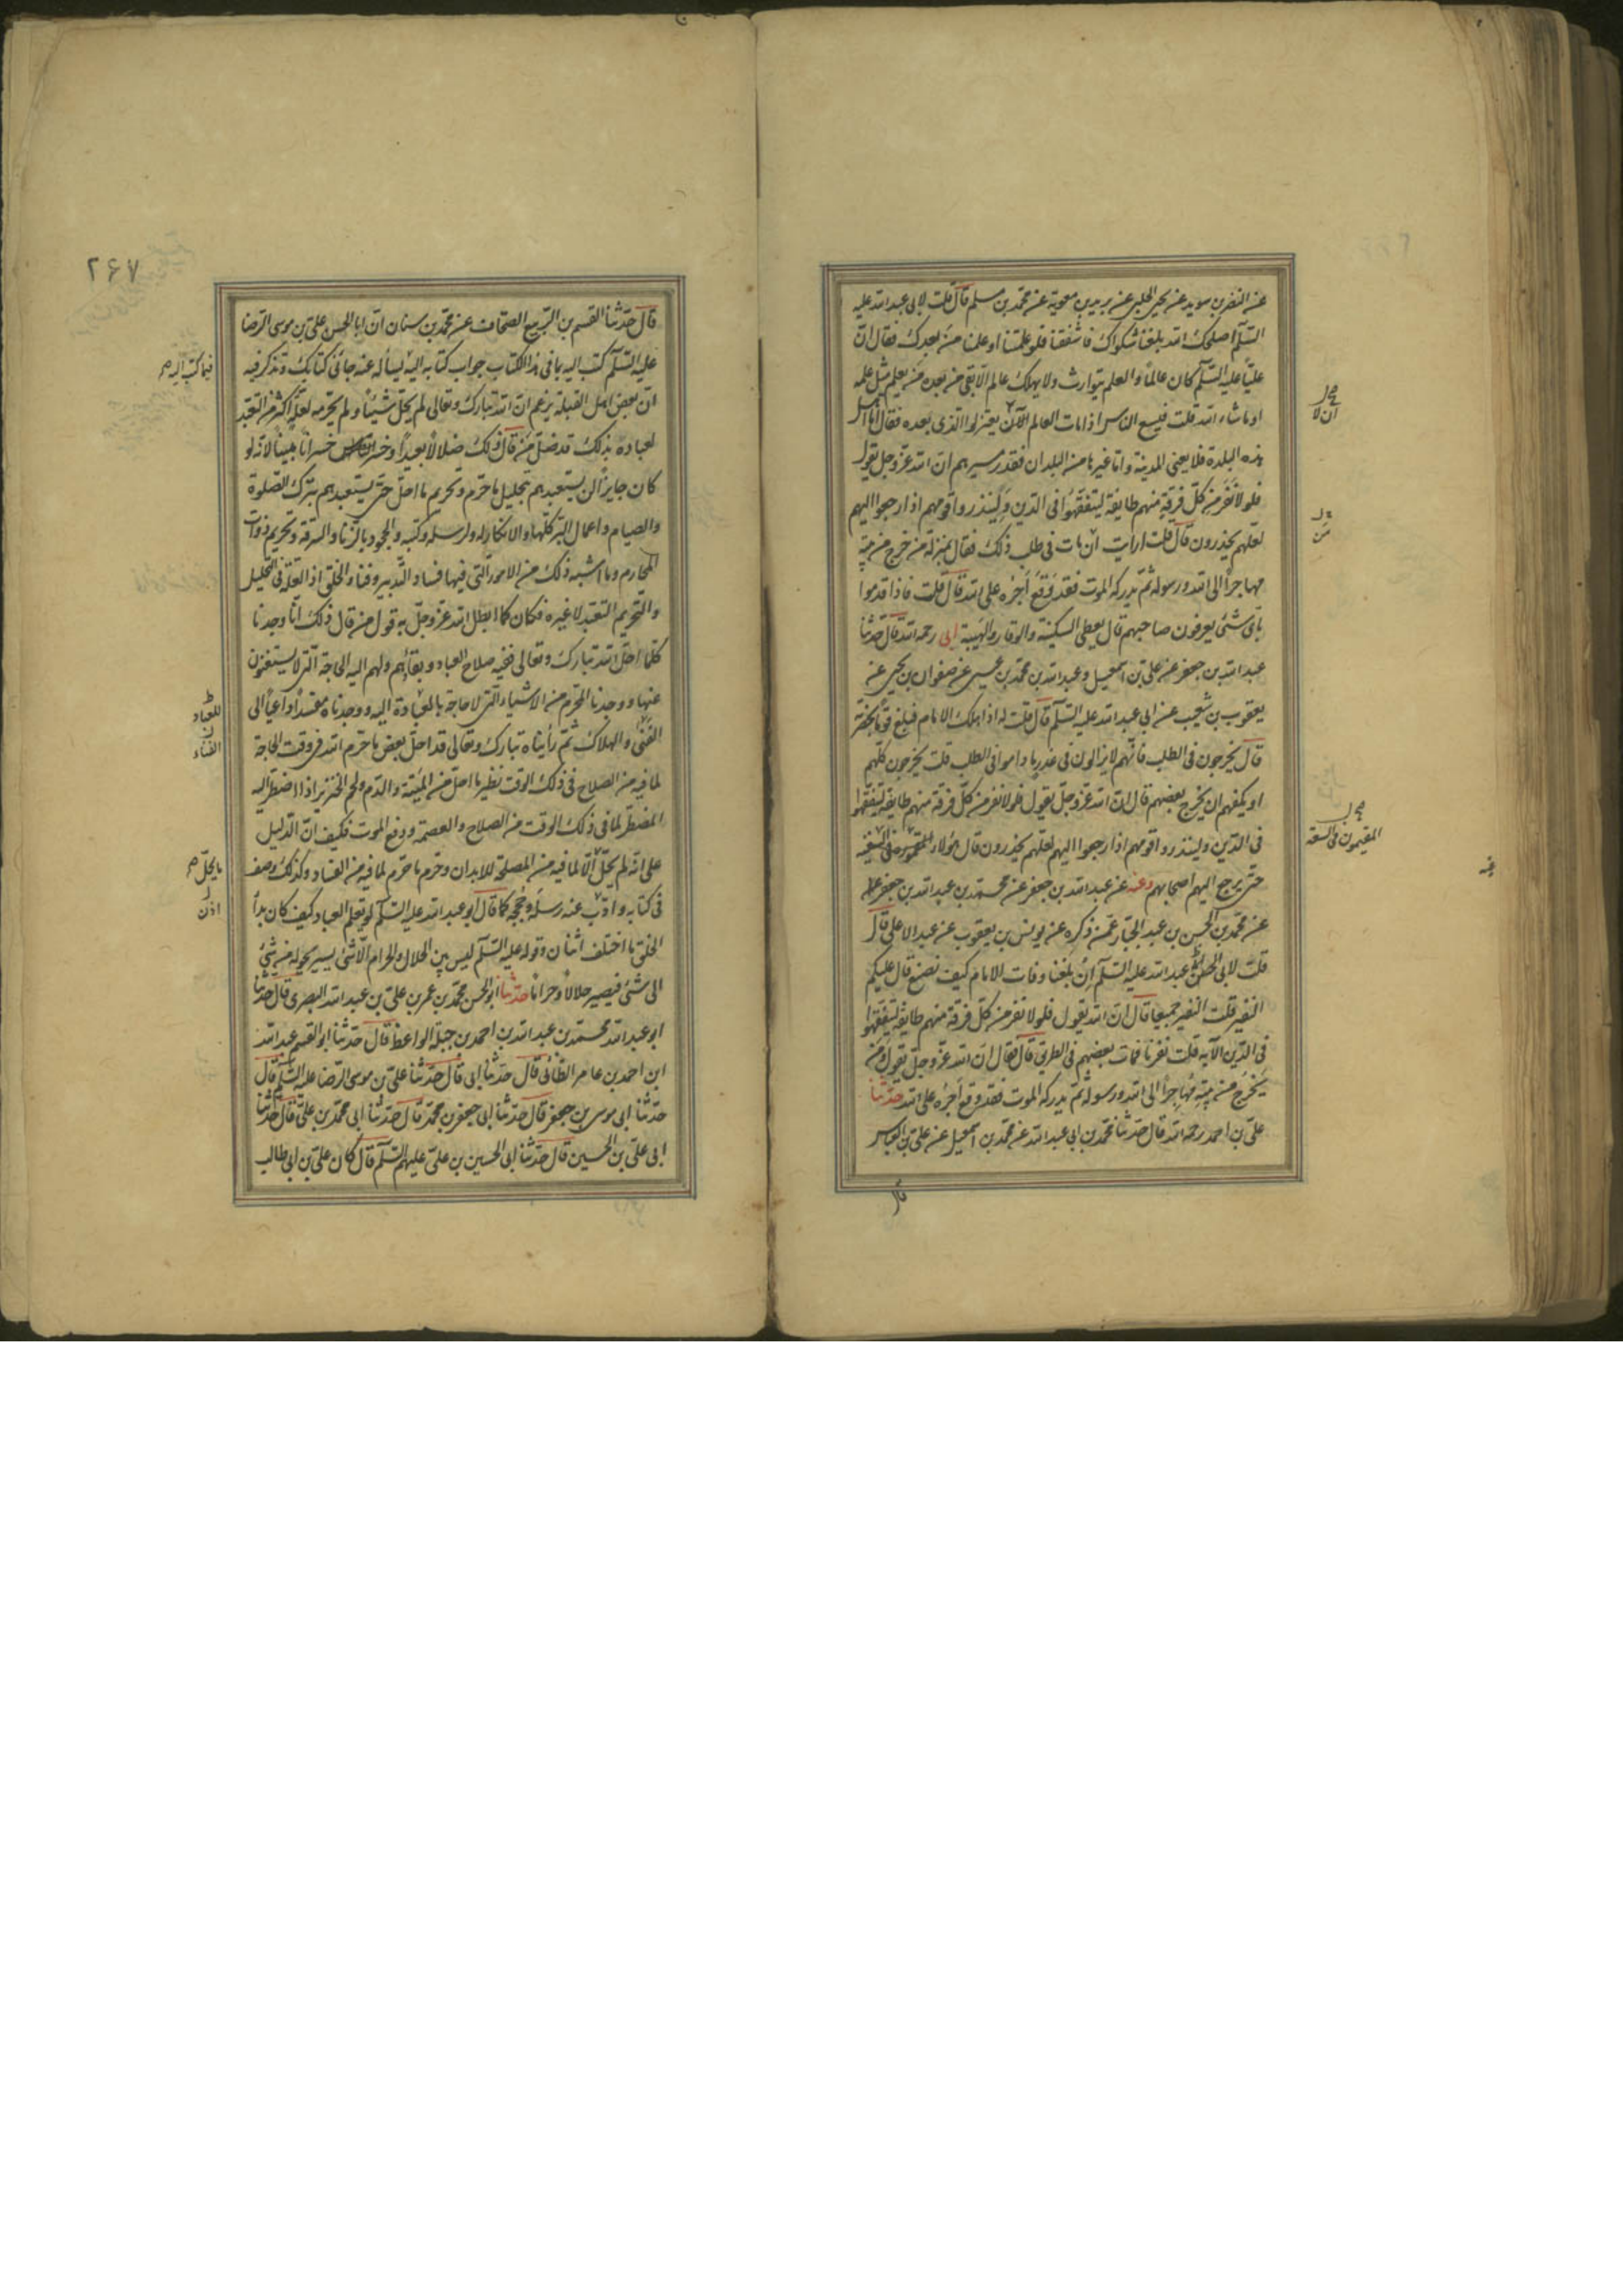 عن النضر بن سويد عن يحيى الحلبى عن بريد بن معوية عن محمد بن مسلم قال قلت لابى عبد الله عليه
السلم اصلحك الله بلغنا شكواك فاشفقنا فلو علمتنا او علمنا من بعدك فقال ان
عليا عليه السلم كان عالما والعلم يتوارث ولا يهلك عالم الا بقى من بعده من يعلم مثل علمه
او ما شاء الله قلت فيسع الناس اذا مات العالم الا ان يعتزلوا الذى بعده فقال اما اهل
هذه البلدة فلا يعنى المدينة واما غيرها من البلدان فقدر مسيرهم ان الله عز وجل يقول
فلولا نفر من كل فرقة منهم طايفة ليتفقهوا فى الدين ولينذروا قومهم اذا رجعوا اليهم
لعلهم يحذرون قال قلت ارايت ان مات فى طلب ذلك فقال بمنزلة من خرج من بيته
مهاجرا الى الله ورسوله ثم يدركه الموت فقد وقع اجره على الله قال قلت فاذا قدموا
باى شئ يعرفون صاحبهم قال يعطى السكينة والوقار والهيبة ابى رحمه الله قال حدثنا
عبد الله بن جعفر عن على بن اسمعيل وعبد الله بن محمد بن عيسى عن صفوان بن يحيى عن
يعقوب بن شعيب عن ابى عبد الله عليه السلم قال قلت له اذا هلك الامام فبلغ قوما بحضرتهم
قال يخرجون فى الطلب فانهم لا يزالون فى عذر ما داموا فى الطلب قلت يخرجون كلهم
او يكفيهم ان يخرج بعضهم قال ان الله عز وجل يقول فلولا نفر من كل فرقة منهم طايفة ليتفقهوا
فى الدين ولينذروا قومهم اذا رجعوا اليهم لعلهم يحذرون قال هولاء المقيمون فى السعة
حتى يرجع اليهم اصحابهم وعنه عن عبد الله بن جعفر عن محمد بن عبد الله بن جعفر
عن محمد بن الحسن بن عبد الجبار عمن ذكره عن يونس بن يعقوب عن عبد الاعلى قال
قلت لابى عبد الله عليه السلم ان بلغنا وفات الامام كيف نصنع قال عليكم
النفير قلت النفير جميعا قال ان الله يقول فلولا نفر من كل فرقة منهم طايفة ليتفقهوا
فى الدين الآية قلت نفرنا فمات بعضهم فى الطريق قال فقال ان الله عز وجل يقول ومن
يخرج من بيته مهاجرا الى الله ورسوله ثم يدركه الموت فقد وقع اجره على الله حدثنا
على بن احمد رحمه الله قال حدثنا محمد بن ابى عبد الله عن محمد بن اسمعيل عن على بن العباس
قال
ان لا
من
المقيمون فى السعة
۲۶۷
قال حدثنا القسم بن الربيع الصحاف عن محمد بن سنان ان ابا الحسن على بن موسى الرضا
عليه السلم كتب اليه بما فى هذا الكتاب جواب كتابه اليه يساله عنه جاءنى كتابك وتذكر فيه
ان بعض اهل القبلة يزعم ان الله تبارك وتعالى لم يحل شيئا ولم يحرمه لعلة اكثر من التعبد
لعباده بذلك قد ضل من قال ذلك ضلالا بعيدا وخسر خسرانا مبينا لانه لو
كان جايزا ان يستعبدهم بتحليل ما حرم وتحريم ما احل حتى يستعبدهم بترك الصلوة
والصيام واعمال البر كلها والانكار له ولرسله وكتبه والجحود بالزنا والسرقة وتحريم ذوات
المحارم وما اشبه ذلك من الامور التى فيها فساد التدبير وفناء الخلق اذ العلة فى التحليل
والتحريم التعبد لا غيره فكان كما ابطل الله عز وجل به قول من قال ذلك انا وجدنا
كلما احل الله تبارك وتعالى ففيه صلاح العباد وبقائهم ولهم اليه الحاجة التى لا يستغنون
عنها ووجدنا المحرم من الاشياء التى لا حاجة بالعباد اليه ووجدناه مفسدا داعيا الى
الفنى والهلاك ثم رأيناه تبارك وتعالى قد احل بعض ما حرم الله فى وقت الحاجة
لما فيه من الصلاح فى ذلك الوقت نظير ما احل من الميتة والدم ولحم الخنزير اذا اضطر اليه
المضطر لما فى ذلك الوقت من الصلاح والعصمة ودفع الموت فكيف ان الدليل
على انه لم يحل الا لما فيه من المصلحة للابدان وحرم ما حرم لما فيه من الفساد وكذلك وصف
فى كتابه وادت عنه رسله وحججه كما قال ابو عبد الله عليه السلم لو تعلم العباد كيف كان بدأ
الخلق ما اختلف اثنان وقوله عليه السلم ليس بين الحلال والحرام الا شئ يسير يحوله من شئ
الى شئ فيصير حلالا وحراما حدثنا ابو الحسن محمد بن عمر بن على بن عبد الله البصرى قال حدثنا
ابو عبد الله محمد بن عبد الله بن احمد بن جبلة الواعظ قال حدثنا ابو القسم عبد الله
ابن احمد بن عامر الطائى قال حدثنا ابى قال حدثنا على بن موسى الرضا عليه السلم قال
حدثنا ابى موسى بن جعفر قال حدثنا ابى جعفر بن محمد قال حدثنا ابى محمد بن على قال حدثنا
ابى على بن الحسين قال حدثنا ابى الحسين بن على عليهم السلم قال كان على بن ابى طالب
فيما كتب اليه
للعباد
الفناء
ما يحل